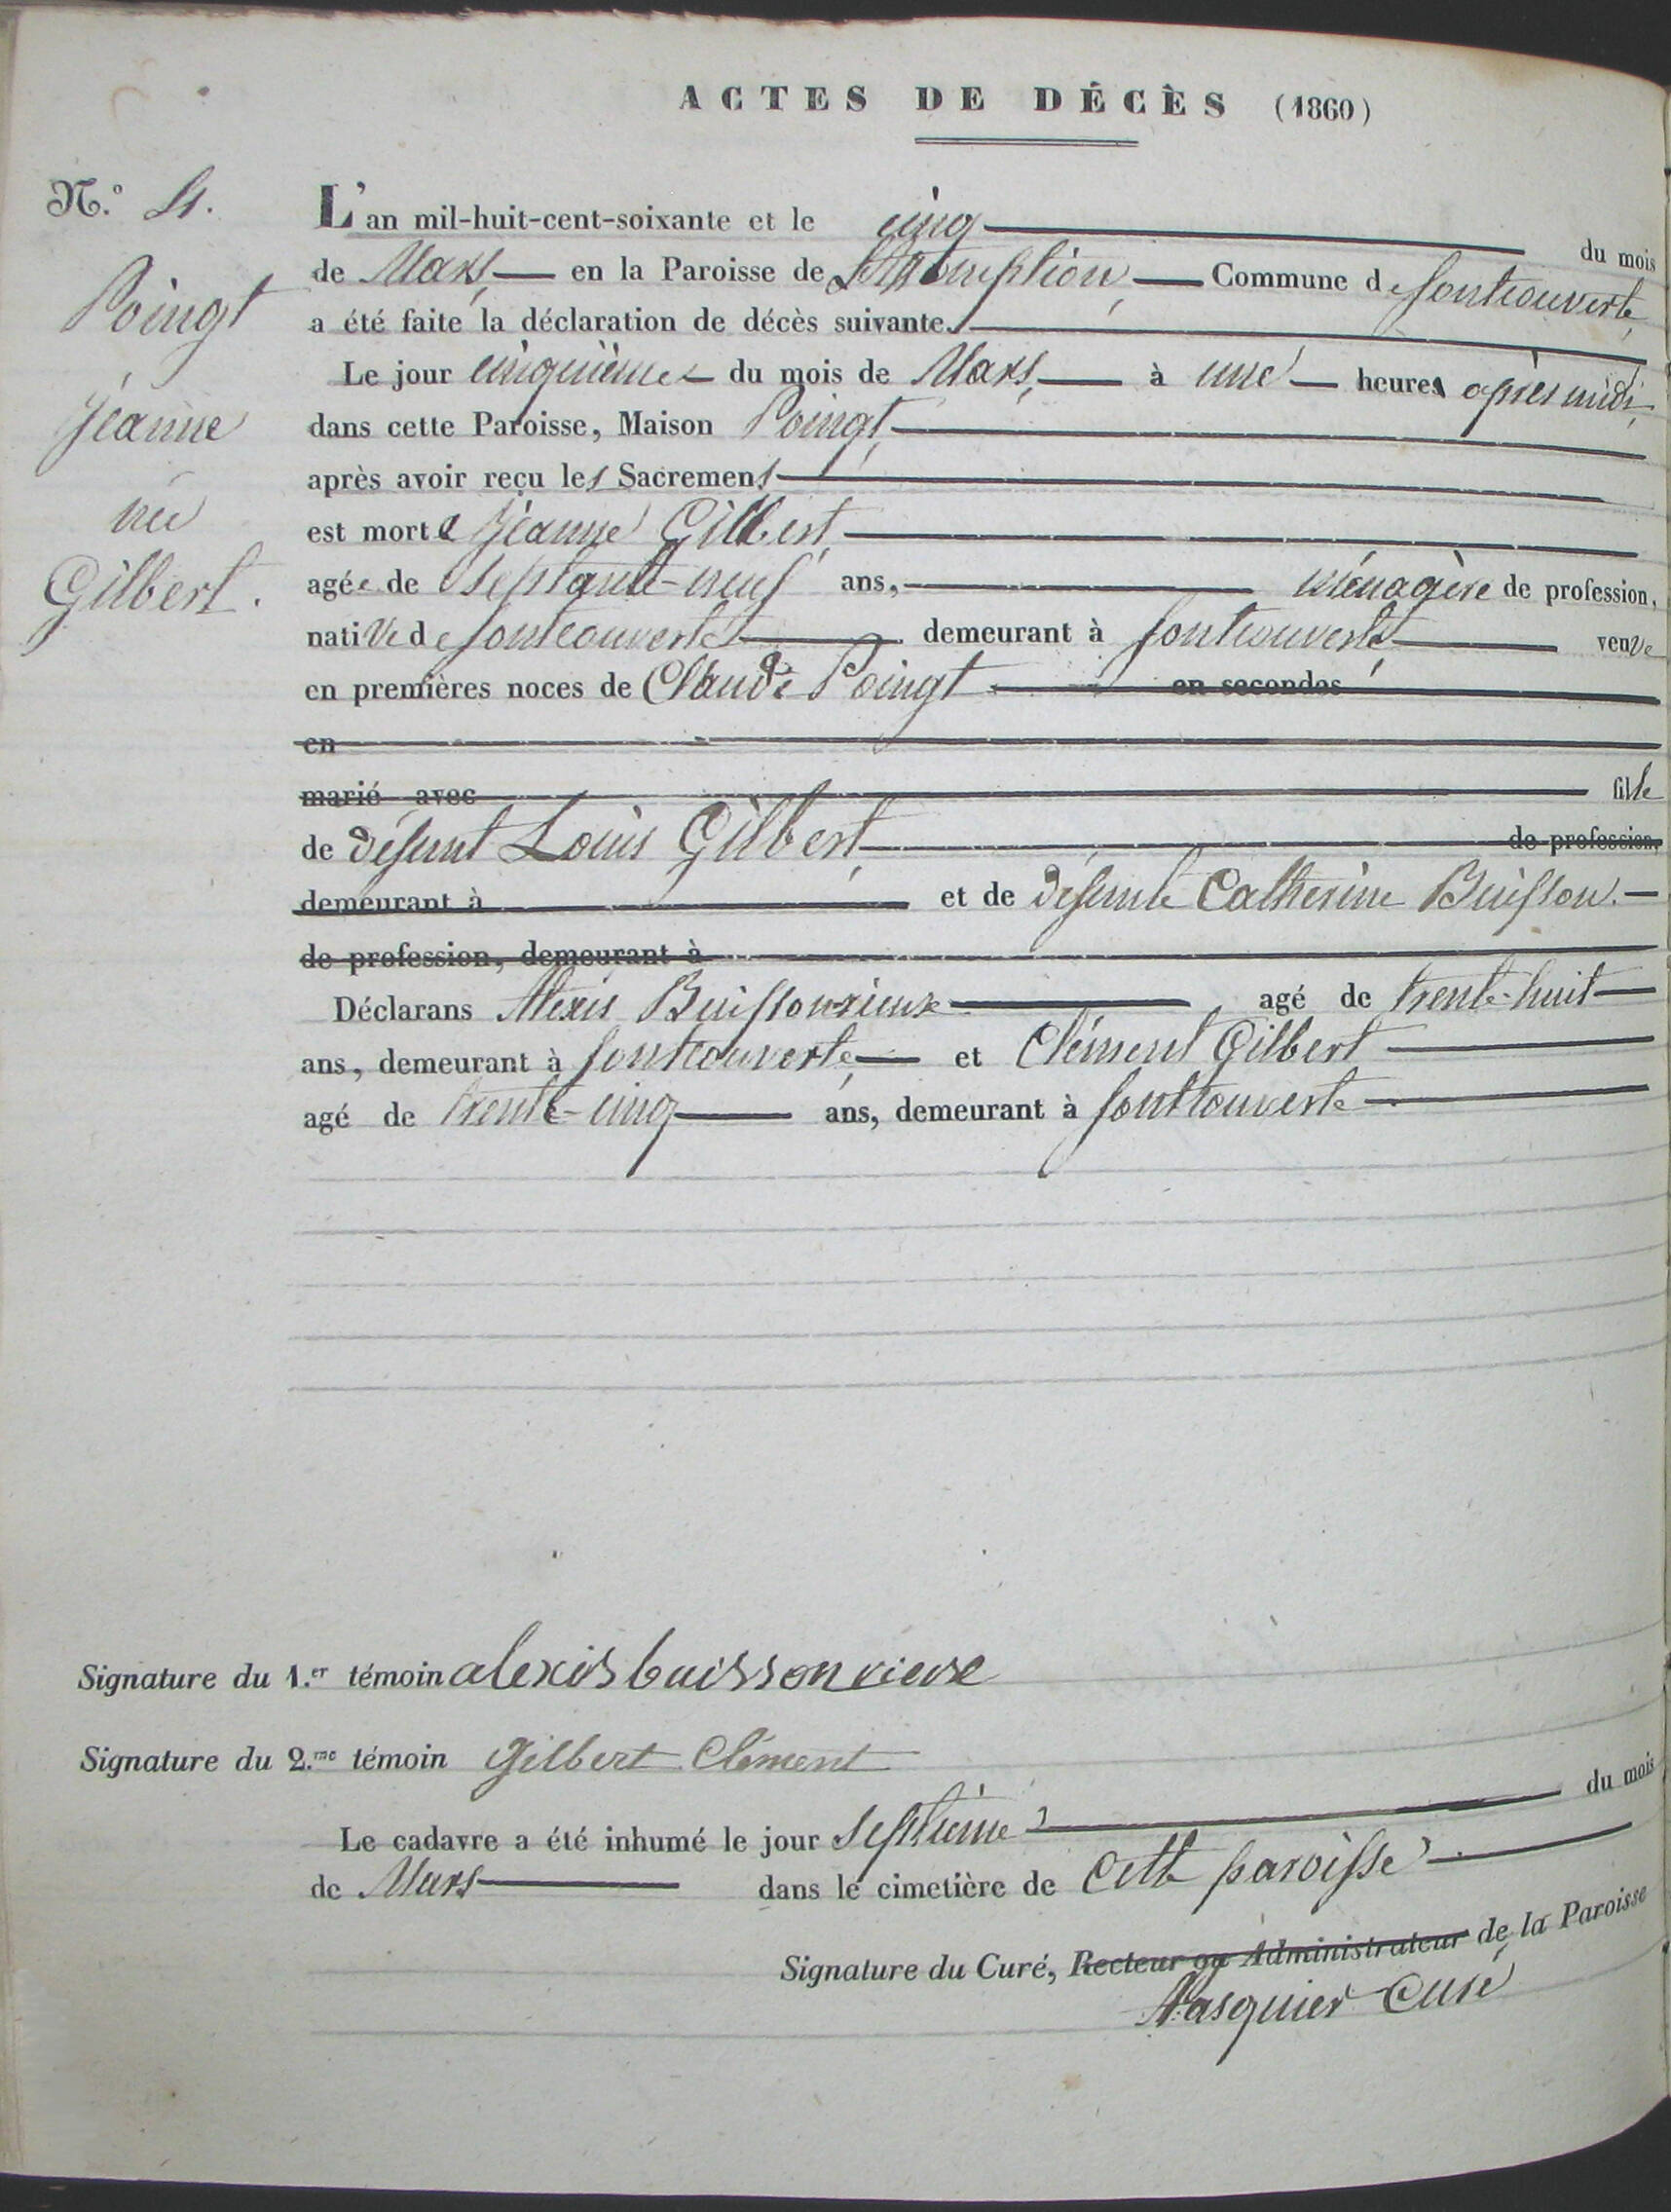 ACTES DE DÉCÈS (1860)
N.° 4.
Poingt
Jeanne
née
Gilbert.
L'an mil-huit-cent-soixante et le cinq du mois
de Mars, en la Paroisse de Commune de fontcouverte,
a été faite la déclaration de décès suivante.
Le jour cinquième du mois de Mars, à une heures après midi,
dans cette Paroisse, Maison Poingt,
après avoir reçu les Sacremens
est morte Jeanne Gilbert,
agée de septante-neuf ans, ménagère de profession,
native de fontcouverte demeurant à fontcouverte, veuve
en premières noces de Claude Poingt en secondes
en
marié avec fille
de défunt Louis Gilbert, de profession,
demeurant à et de défunte Catherine Buisson.
de profession, demeurant à
Déclarans Alexis Buissonrieux agé de trente-huit
ans, demeurant à fontcouverte, et Clément Gilbert
agé de trente-cinq ans, demeurant à fontcouverte
Signature du 1.er témoin alexis buissonrieux
Signature du 2.me témoin Gilbert Clément
Le cadavre a été inhumé le jour septième du mois
de Mars dans le cimetière de cette paroisse
Signature du Curé, Recteur ou Administrateur de la Paroisse
Curé